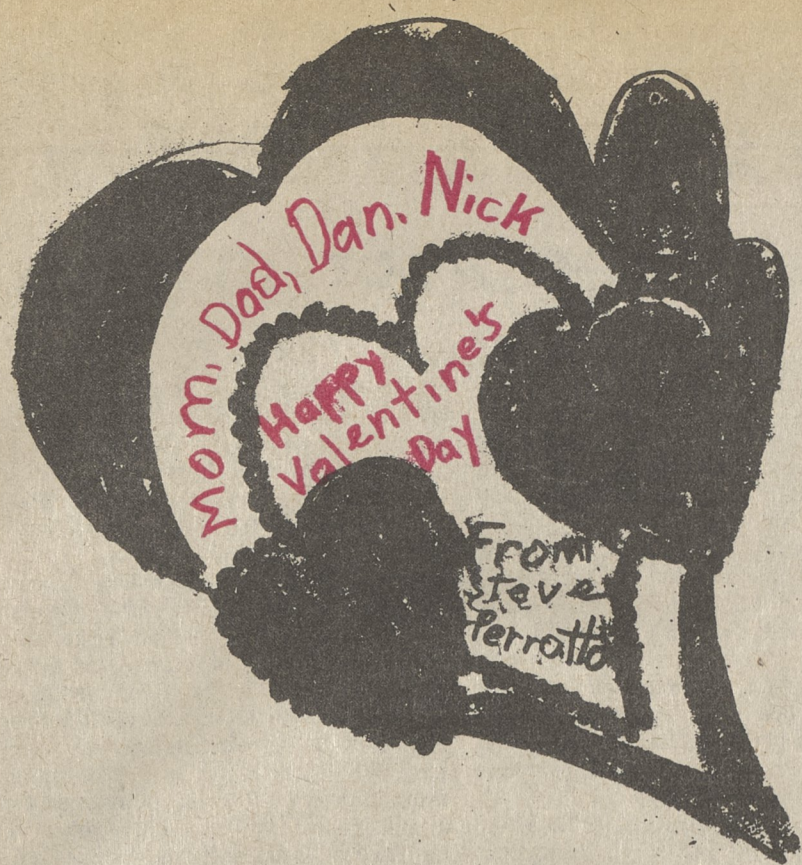 Mom, Dad, Dan, Nick
Happy
Valentine's
Day
From
Steve
Perratto